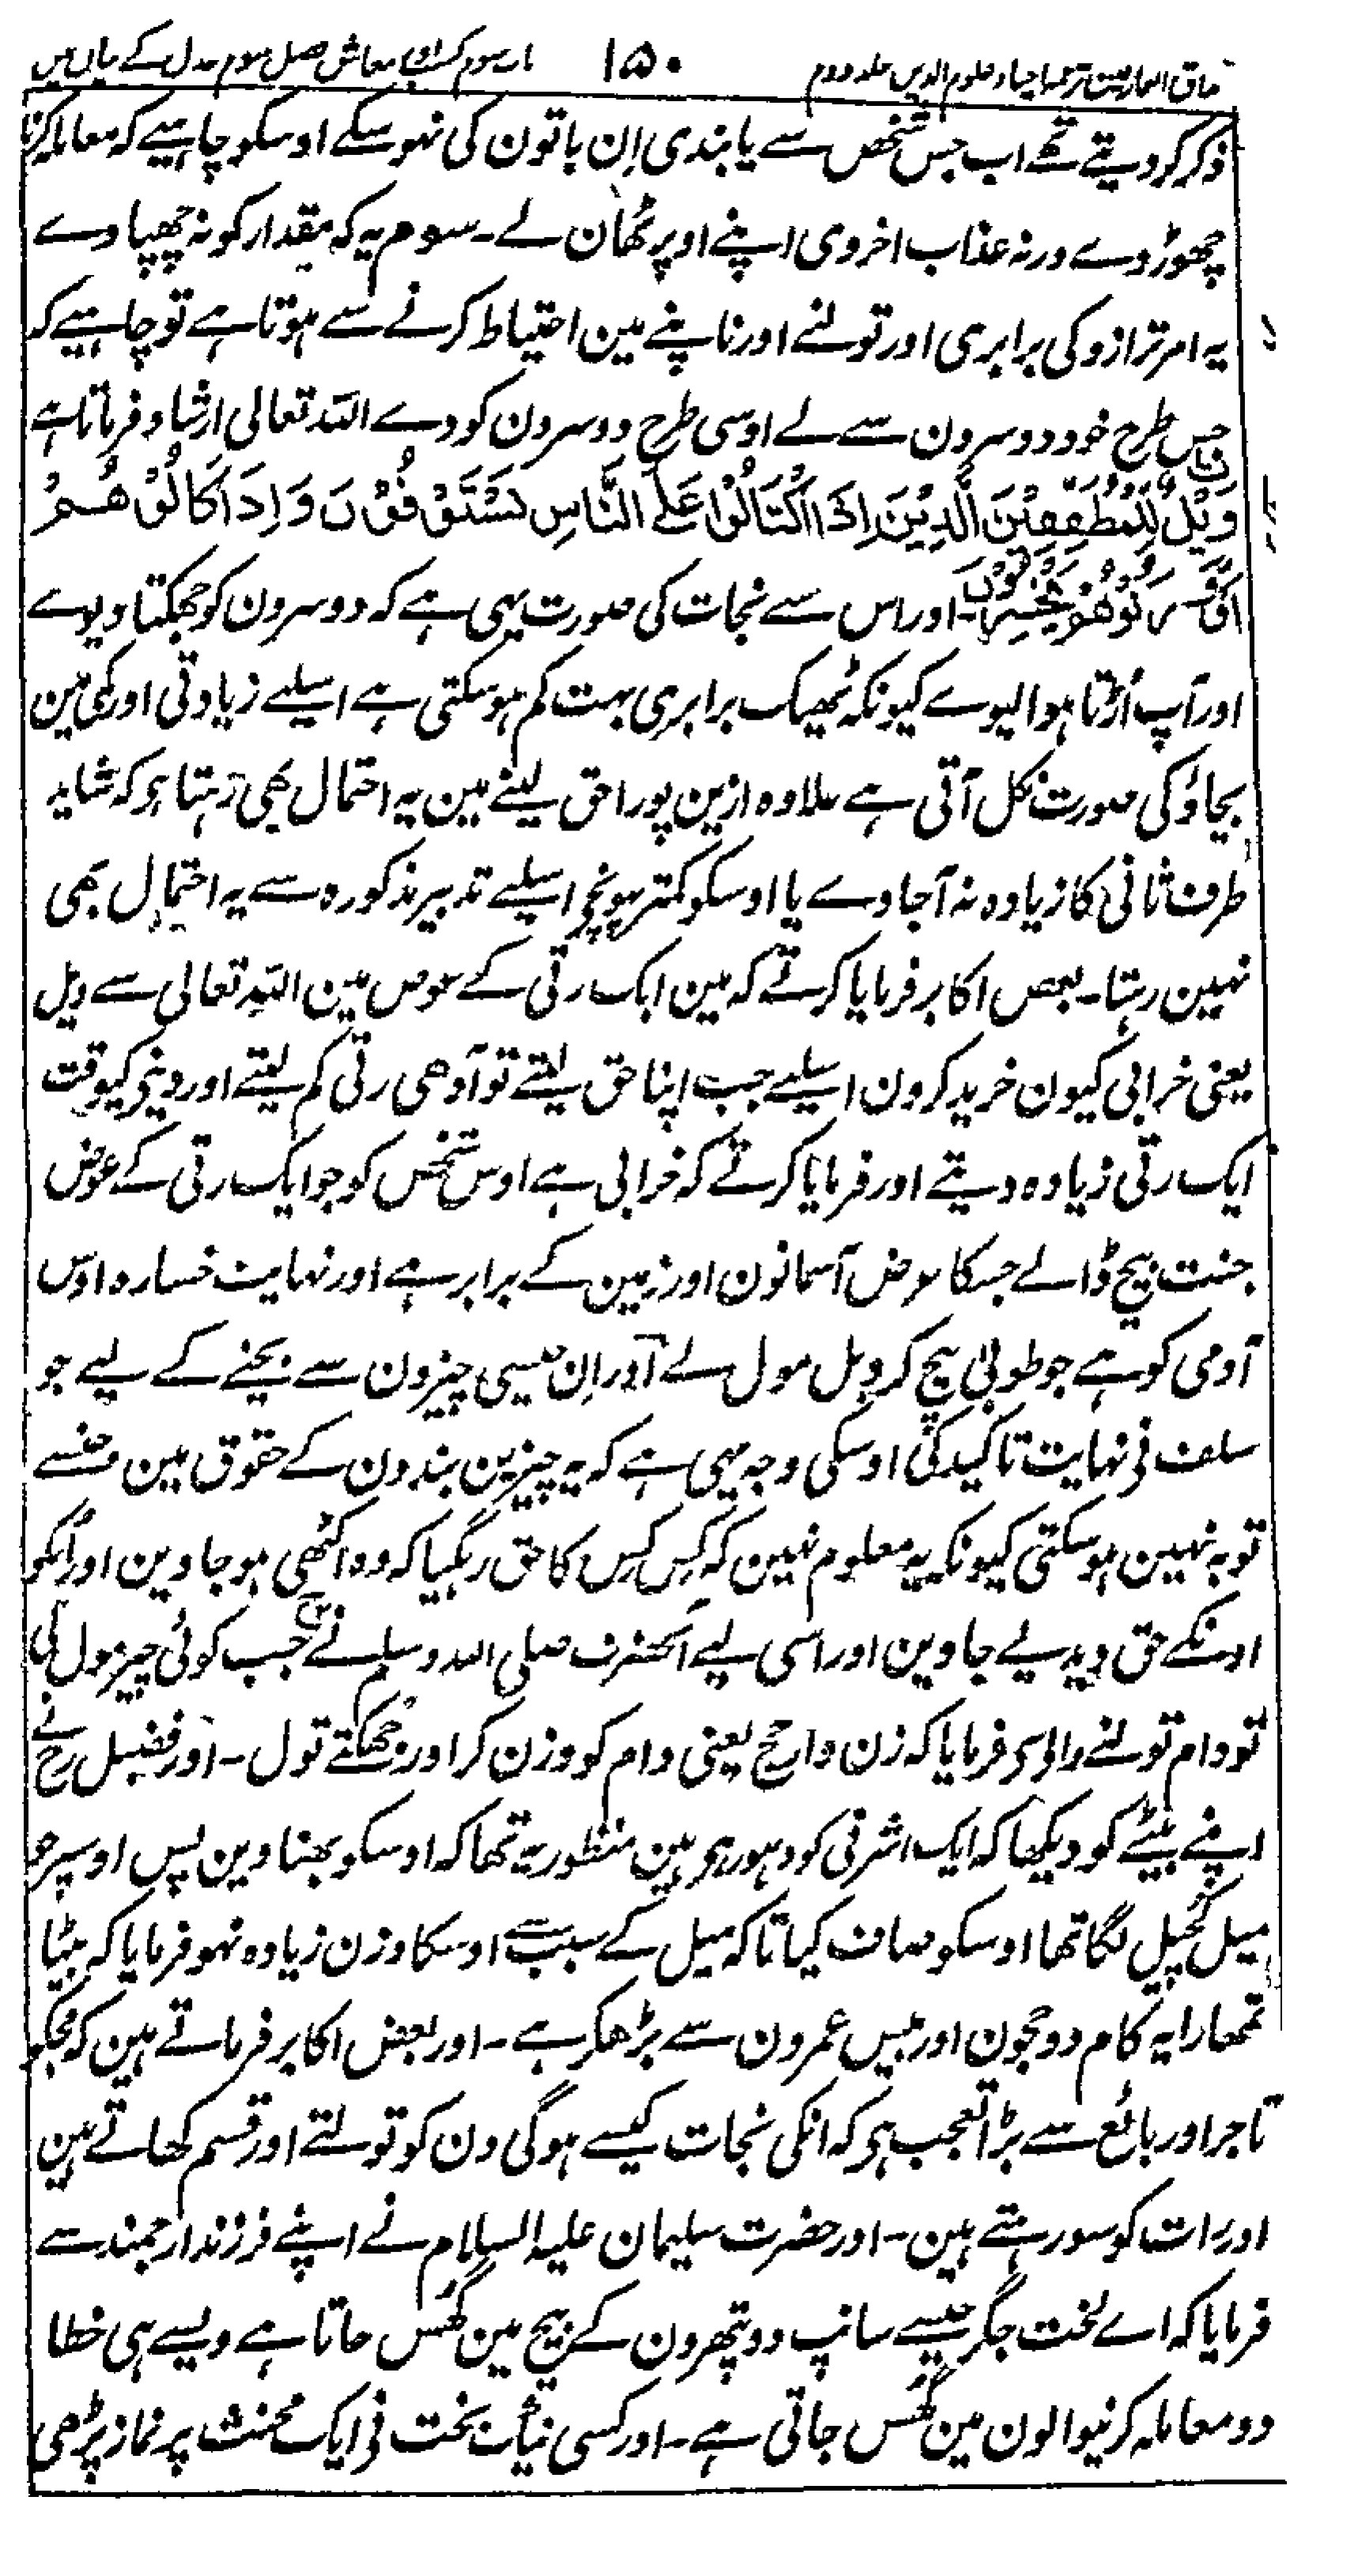 مذاق العارفین ترجمہ احیاء علوم الدین جلد دوم ۱۵۰ باب سوم کسب اور معاش فصل سوم عدل کے بیان میں
ذکر کر دیتے تھے اب جس شخص سے پابندی اِن باتون کی نہو سکے اوسکو چاہیے کہ معاملہ کرنا
چھوڑ دے ورنہ عذاب اخروی اپنے اوپر ٹھان لے۔ سوم یہ کہ مقدار کو نہ چھپاوے
یہ امر ترازو کی برابری اور تولنے اور ناپنے مین احتیاط کرنے سے ہوتا ہے تو چاہیے کہ
جس طرح خود دوسرون سے لے اوسی طرح دوسرون کو دے اللہ تعالی ارشاد فرماتا ہے
وَيْلٌ لِّلْمُطَفِّفِيْنَ الَّذِيْنَ اِذَا اكْتَالُوْا عَلَى النَّاسِ يَسْتَوْفُوْنَ وَاِذَا كَالُوْهُمْ
اَوْ وَّزَنُوْهُمْ يُخْسِرُوْنَ۔ اور اس سے نجات کی صورت یہی ہے کہ دوسرون کو جھکتا دیوے
اور آپ اُڑتا ہوا لیوے کیونکہ ٹھیک برابری بہت کم ہو سکتی ہے اسلیے زیادتی اور کمی مین
بچاؤ کی صورت نکل آتی ہے علاوہ ازین پورا حق لینے مین یہ احتمال بھی رہتا ہو کہ شاید
طرف ثانی کا زیادہ نہ آجاوے یا اوسکو کمتر پہونچے اسلیے تدبیر مذکورہ سے یہ احتمال بھی
نہین رہتا۔ بعض اکابر فرمایا کرتے کہ مین ایک رتی کے عوض مین اللہ تعالی سے ویل
یعنی خرابی کیون خرید کرون اسلیے جب اپنا حق لیتے تو آدھی رتی کم لیتے اور دینے کیوقت
ایک رتی زیادہ دیتے اور فرمایا کرتے کہ خرابی ہے اوس شخص کو جو ایک رتی کے عوض
جنت بیچ ڈالے جسکا عرض آسمانون اور زمین کے برابر ہے اور نہایت خسارہ اوس
آدمی کو ہے جو طوبیٰ بیچ کر ویل مول لے اور اِن جیسی چیزون سے بچنے کے لیے جو
سلف نے نہایت تاکید کی اوسکی وجہ یہی ہے کہ یہ چیزین بندون کے حقوق ہین جنسے
توبہ نہین ہو سکتی کیونکہ یہ معلوم نہین کہ کِس کِس کا حق رہگیا کہ وہ اکٹھی ہو جاوین اور اُنکو
اونکے حق دیدیے جاوین اور اسی لیے آنحضرت صلی اللہ وسلم نے جب کوئی چیز مول لی
تو دام تولنے والے سے فرمایا کہ زن وارجح یعنی دام کو وزن کر اور جھکتے تول۔ اور فضیل رح نے
اپنے بیٹے کو دیکھا کہ ایک اشرفی کو دھو رہے ہین منظور یہ تھا کہ اوسکو بھناوین پس اوسپر جو
میل کچیل لگا تھا اوسکو صاف کیا تاکہ میل کے سبب سے اوسکا وزن زیادہ نہو فرمایا کہ بیٹا
تمھارا یہ کام دو حجون اور بیس عمرون سے بڑھکر ہے۔ اور بعض اکابر فرماتے ہین کہ مجکو
تاجر اور بائع سے بڑا تعجب ہو کہ انکی نجات کیسے ہوگی دن کو تولتے اور قسم کھاتے ہین
اور رات کو سو رہتے ہین۔ اور حضرت سلیمان علیہ السلام نے اپنے فرزند ارجمند سے
فرمایا کہ اے لخت جگر جیسے سانپ دو پتھرون کے بیچ مین گھُس جاتا ہے ویسے ہی خطا
دو معاملہ کرنیوالون مین گھُس جاتی ہے۔ اور کسی نیک بخت نے ایک مخنث پر نماز پڑھی